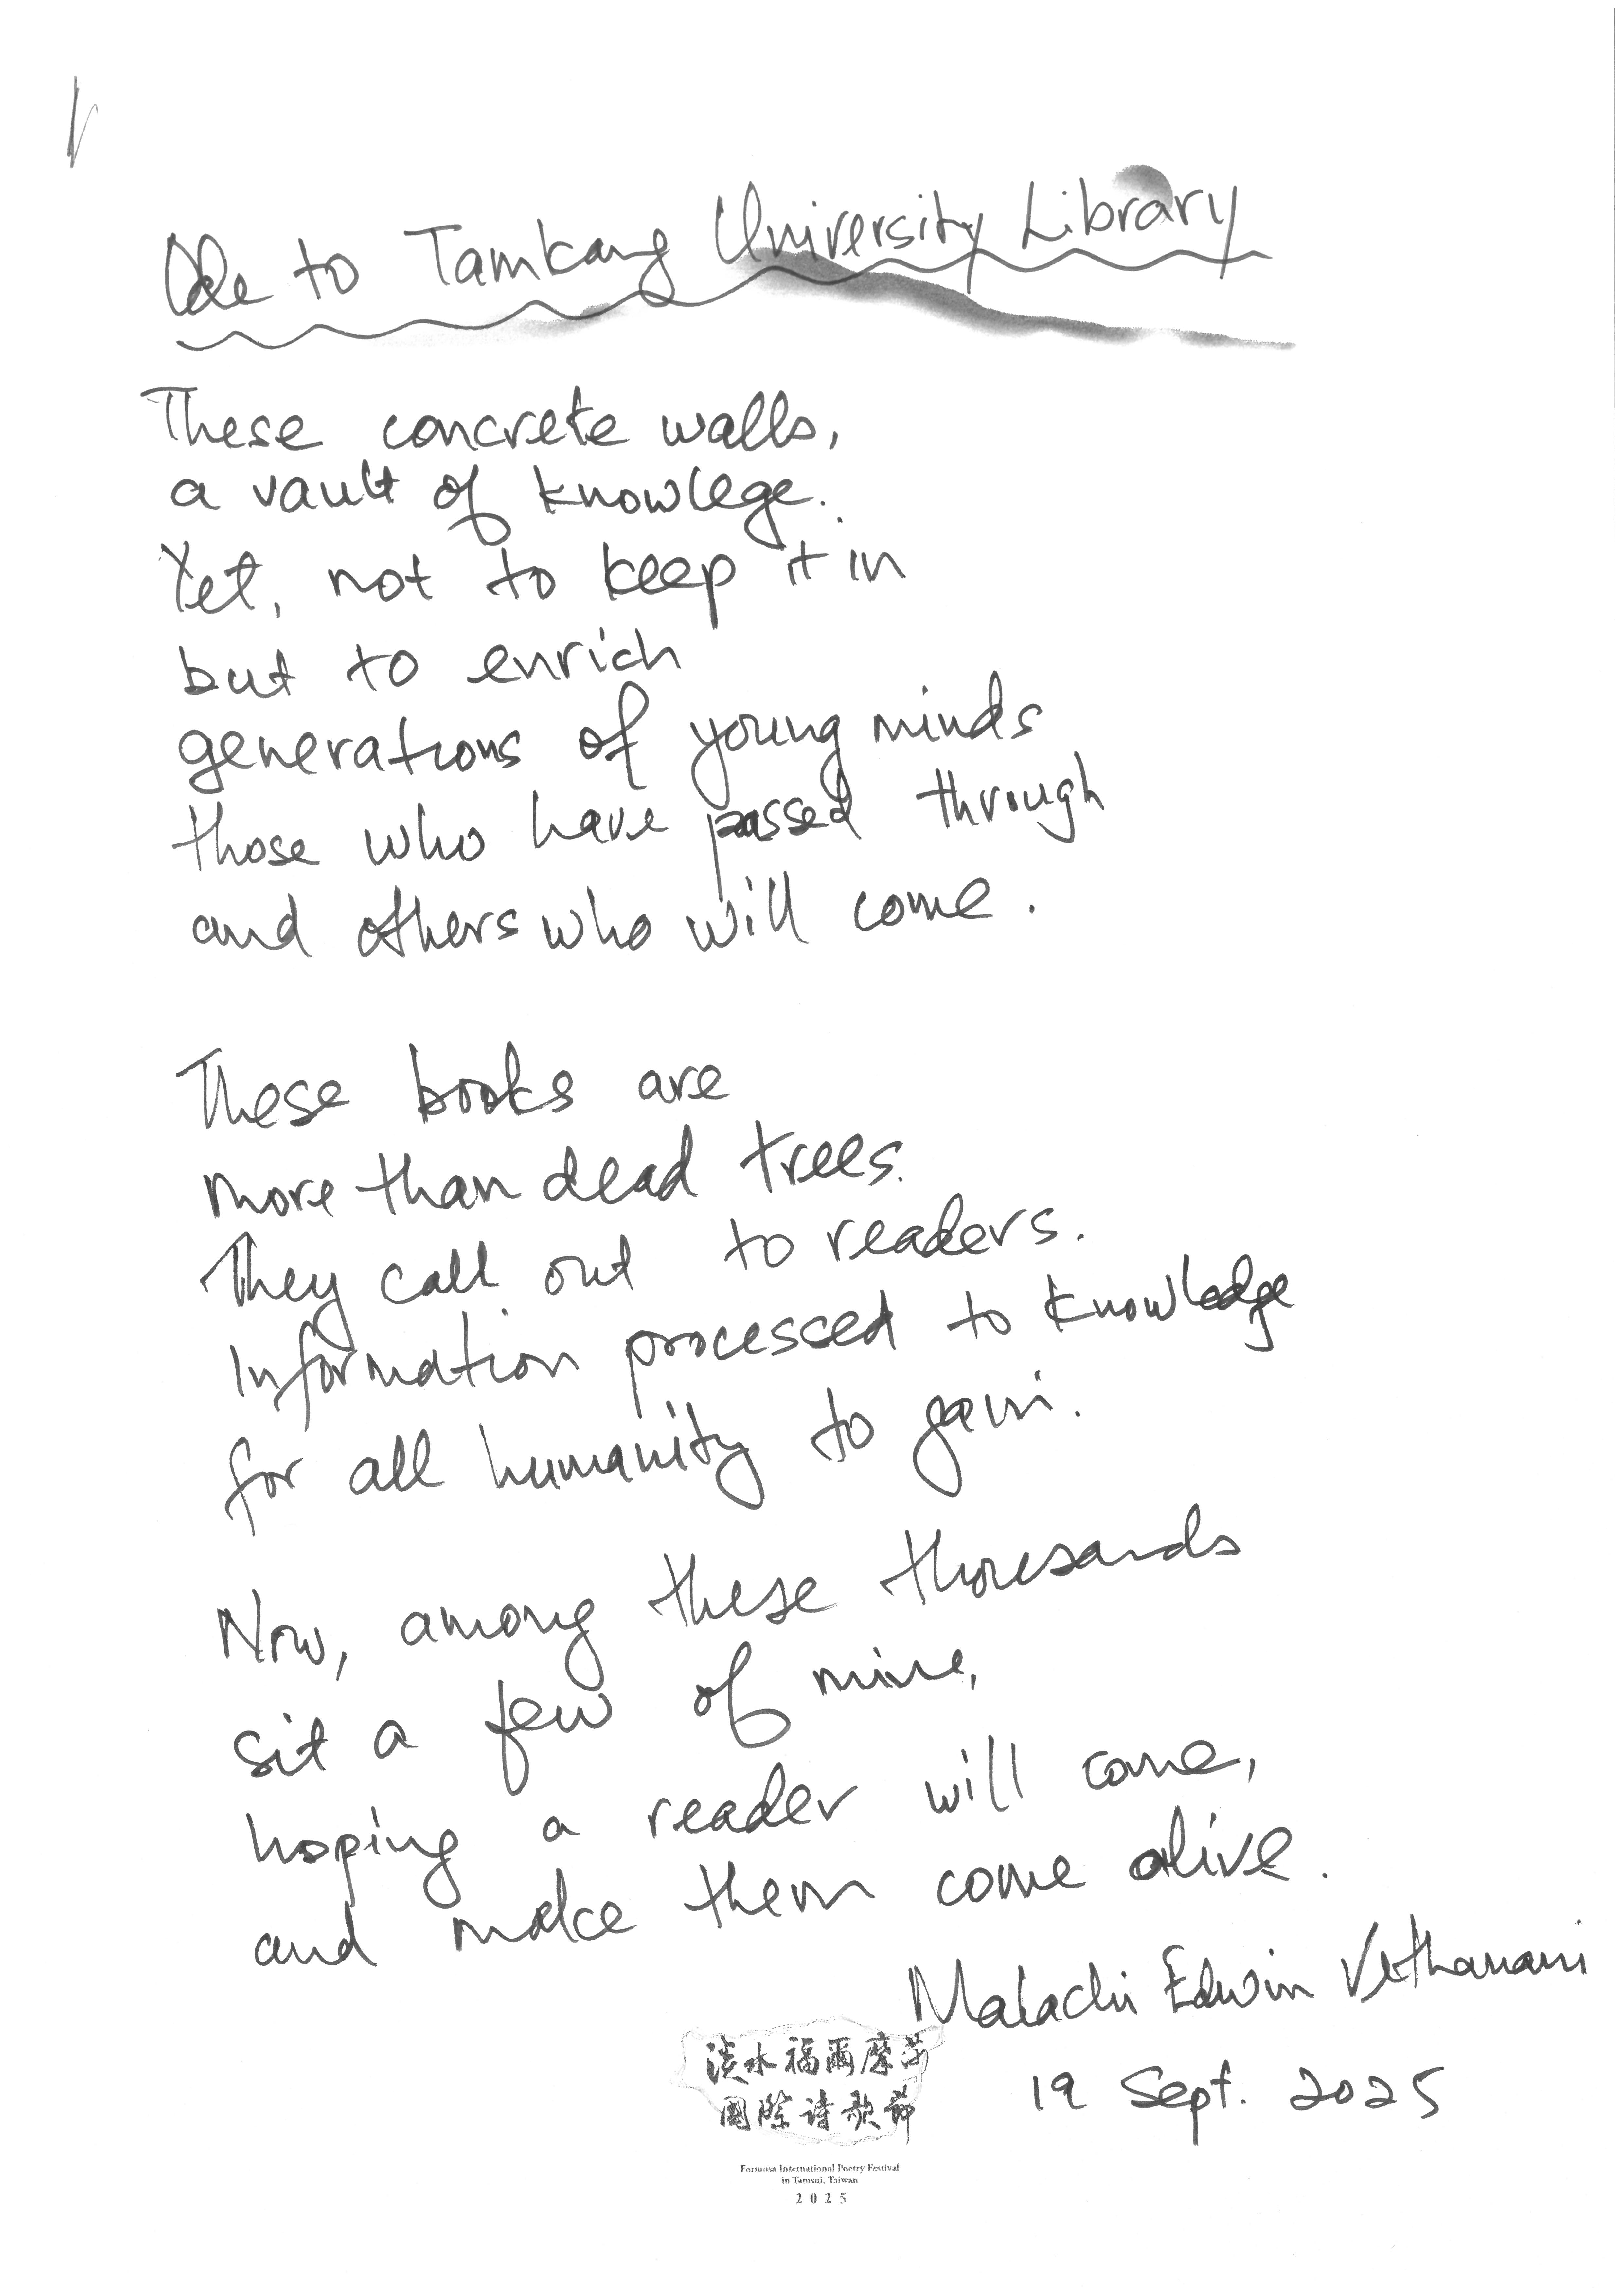 Ode to Tamkang University Library
These concrete walls,
a vault of knowlege.
Yet, not to keep it in
but to enrich
generations of young minds
those who have passed through
and others who will come.
These books are
more than dead trees.
They call out to readers.
Information processed to knowledge
for all humanity to gain.
Now, among these thousands
sit a few of mine,
hoping a reader will come,
and make them come alive.
Malachi Edwin Vethamani
19 Sept. 2025
淡水福爾摩莎
國際詩歌節
Formosa International Poetry Festival
in Tamsui, Taiwan
2025